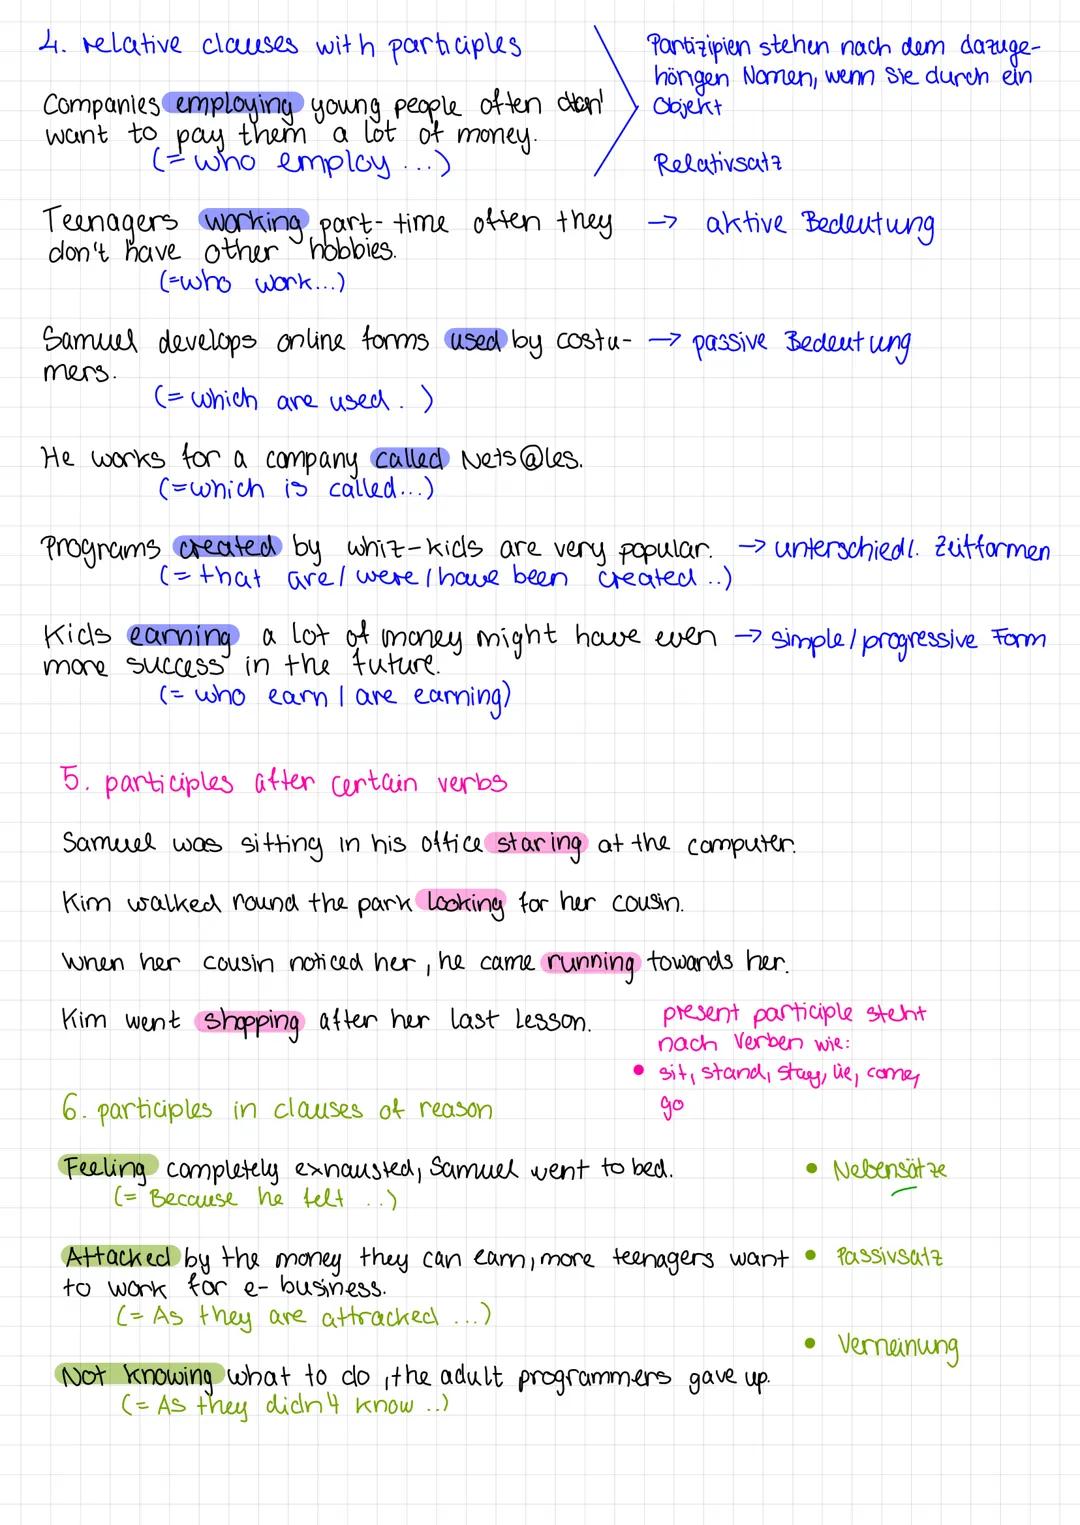 4. relative clauses with participles
Partizipien stehen nach dem dazuge-
höngen Nomen, wenn Sie durch ein
Objekt
Relativsatz
Companies employing young people often don't
want to pay them a lot of money.
(= who employ ...)
Teenagers working part-time often they → aktive Bedeutung
don't have other hobbies.
(=who work...)
Samuel develops online forms used by costu- → passive Bedeutung
mers.
(= which are used. )
He works for a company called Nets@les.
(=which is called...)
Programs created by whiz-kids are very popular. → unterschiedl. Zeitformen
(= that are / were / have been created ..)
Kids earning a lot of money might have even → simple/progressive Form
more success in the future.
(= who earn / are earning)
5. participles after certain verbs
Samuel was sitting in his office staring at the computer.
Kim walked round the park looking for her cousin.
When her cousin noticed her, he came running towards her.
Kim went shopping after her last lesson.
present participle steht
nach Verben wie:
• sit, stand, stay, lie, come,
go
6. participles in clauses of reason
Feeling completely exhausted, Samuel went to bed. • Nebensätze
(= Because he felt ..)
Attacked by the money they can earn, more teenagers want • Passivsatz
to work for e-business.
(= As they are attracked ...)
• Verneinung
Not knowing what to do, the adult programmers gave up.
(= As they didn't know ..)